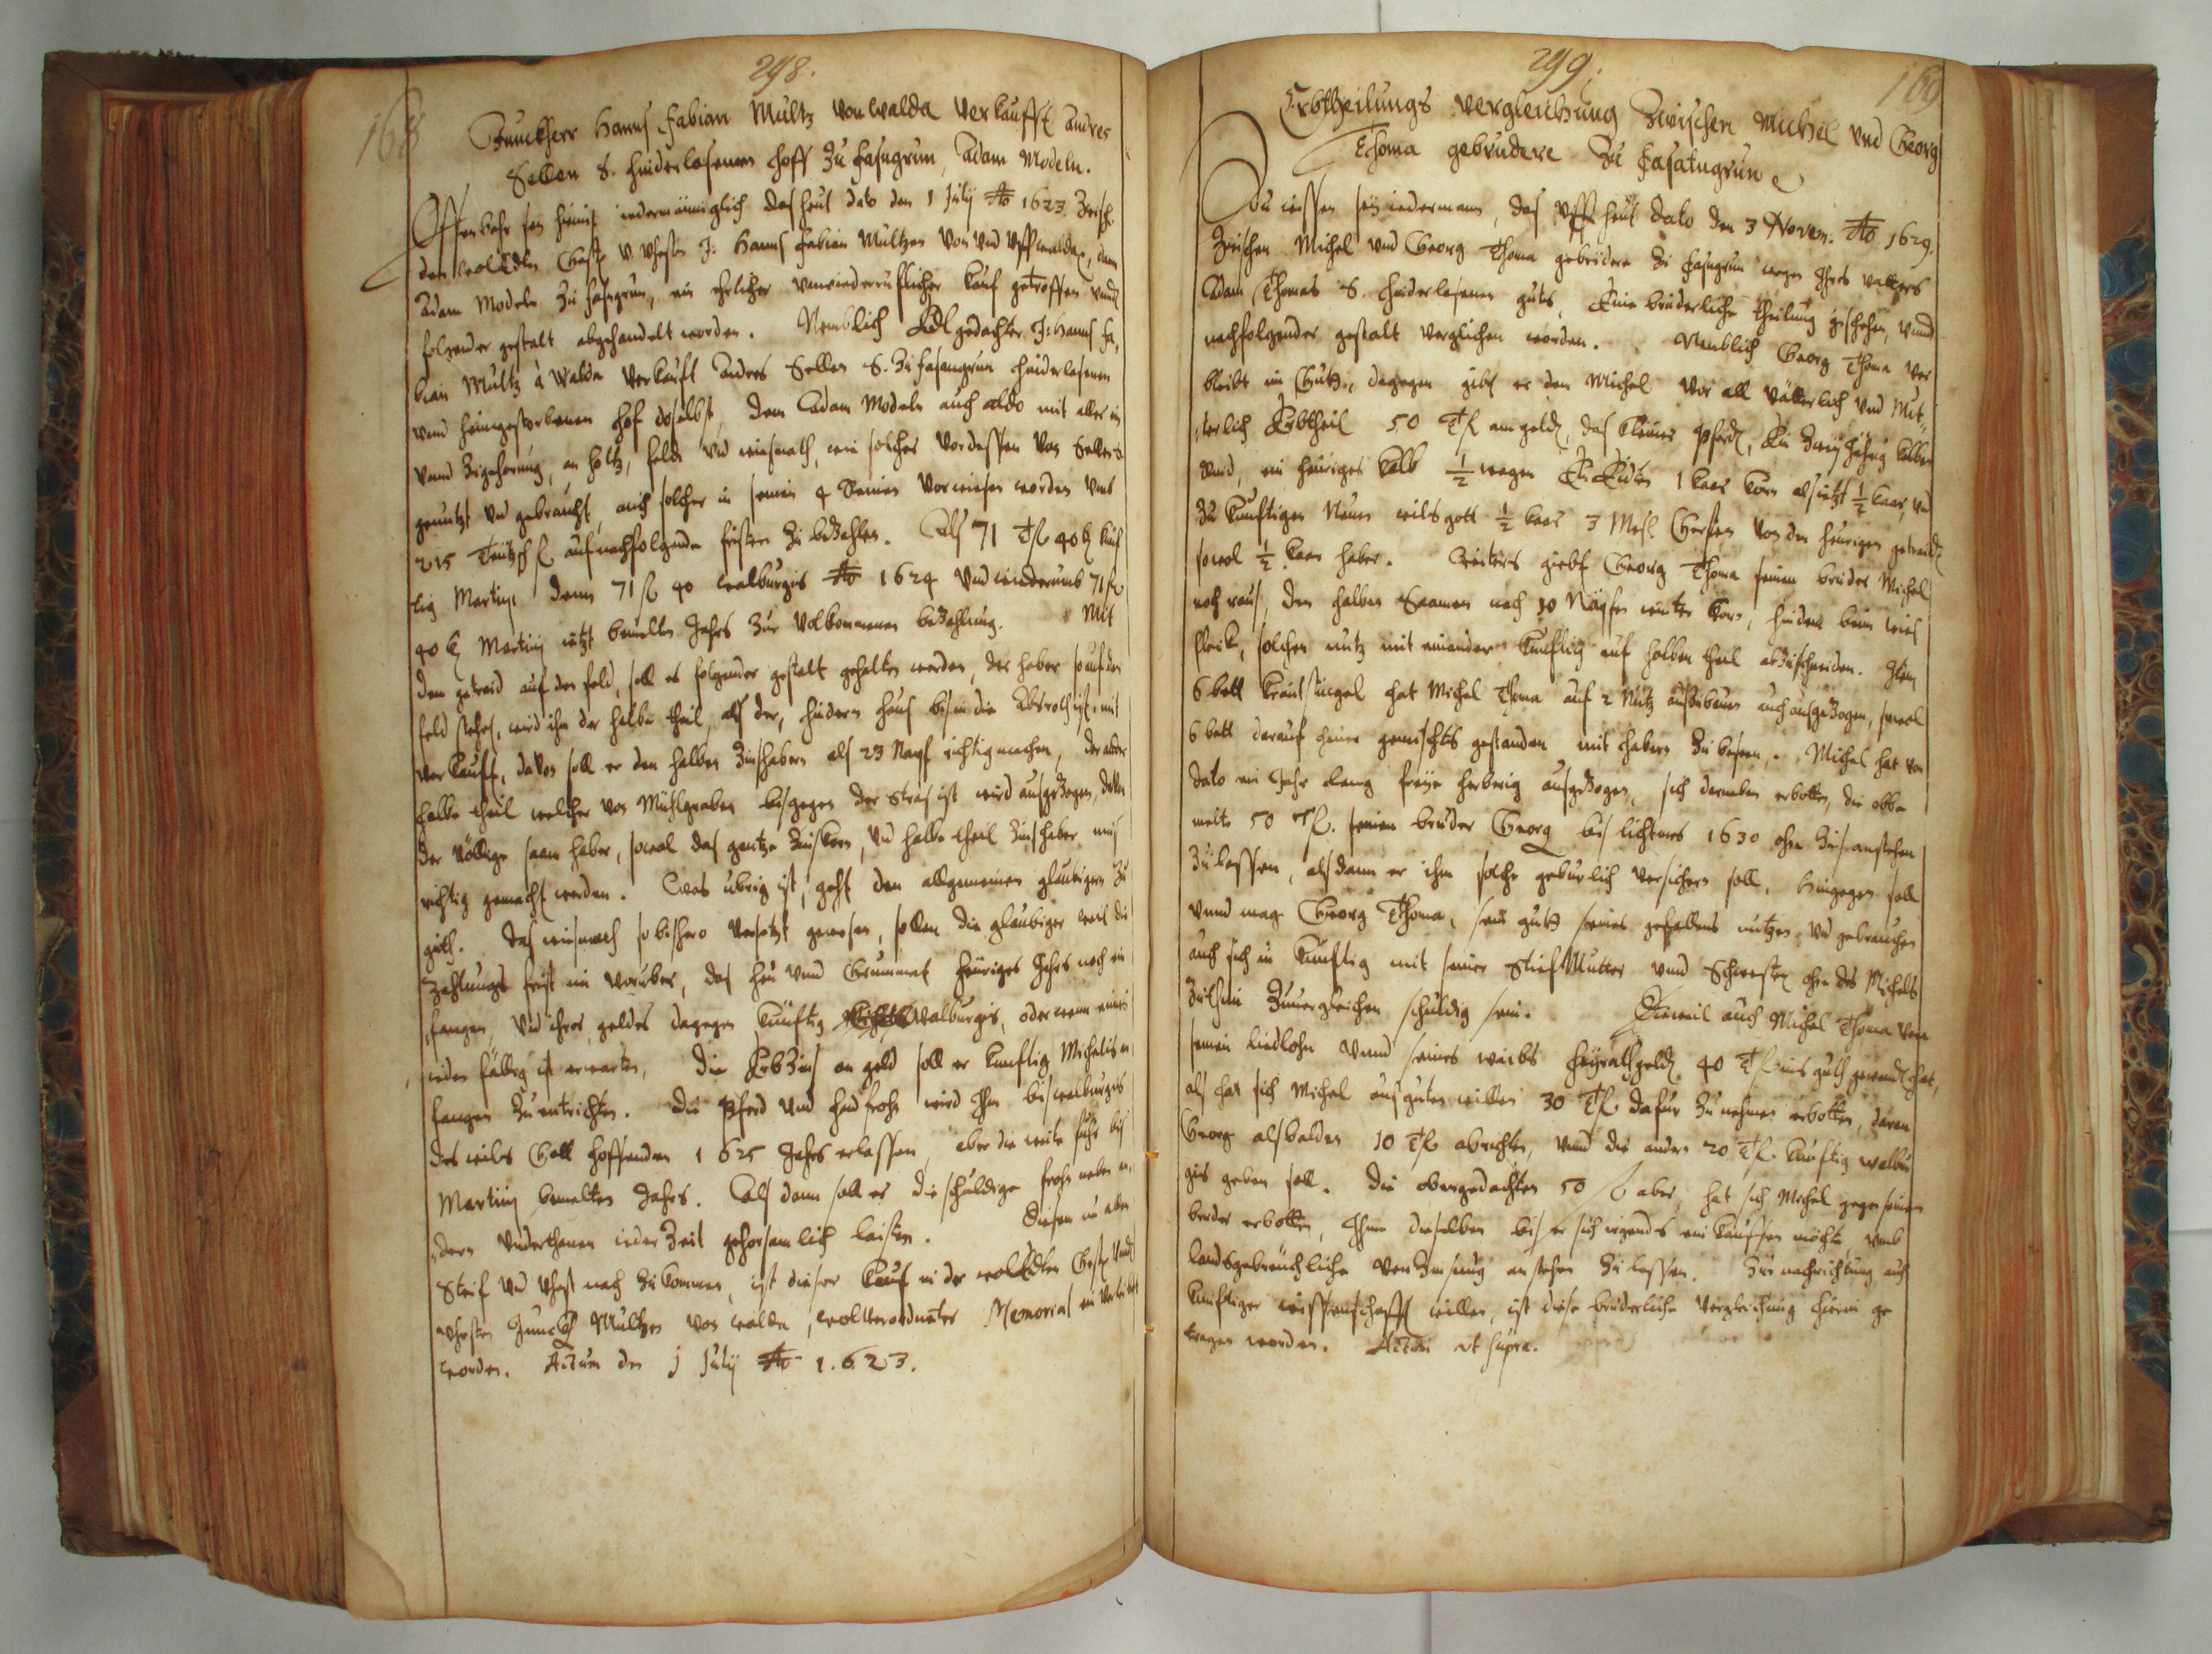 298.
168
Junckherr Hanns Fabian Multz von Walda verkaufft Andres
Sellen S. hinderlasenen Hoff zu Fasngrun, Adam Modeln.
Offenbahr sey hiemit iedermänniglich das heut dato den 1 July Ao 1623 Zwisch.
den wolEdln Gestr. v. Vhesten J. Hanns Fabian Multzen von vnd vff Walda, dann
Adam Modeln zu Fasngrun, ein ehrlicher vnwiederruflicher Kauf getroffen vnnd
folgender gestalt abgehandelt worden. Nemblich Edl gedachter J. Hanns Fa,
bian Multz à Walda verkauft Andres Sellen S. zu Fasangrun hinderlasenen
vnnd heimgestorbenen Hof doselbst, dem Adam Modeln auch aldo mit aller ein
vnnd Zugehorung, an holtz, feldt vnd wiesmath, wie solches vordessen von Sellen
genutzt vnd gebraucht, auch solcher in seinen 4 Reinen vorwiesen worden vmb
215 Teutzsch fl auf nachfolgende fristen zu bezahlen. Als 71 Tfl 40 k künf
tig Martini, dann 71 fl 40 Walburgis Ao 1624 vnd wiederumb 71 fl
40 k Martini ietzt bemelten Jahrs zur volkommenen bezahlung. Mit
dem getraid auf den feld, soll es folgender gestalt gehalten werden, der haber so auf den
feld stehet, wird ihm der halbe theil, als der, hindern Haus bis in die  mit
verkaufft, davon soll er den halben Zinshabern als 23 Napf richtig machen, der ander
halbe theil welcher von Mühlgraben bis gegen der Stras ist wird ausgezogen, davon
der völlige saam haber, sowol das gantze Zinskorn, vnd halbe theil Zinshaber mus
richtig gemacht werden. Was übrig ist, geht den allgemeinen glaubigern zu
guth. Das wiesmath so bishero versetzt gewesen, sollen die glaubiger weil die
Zahlungs frist nie vorüber, das heu vnnd Grummat heuriges Jahrs noch ein
fangen, vnd ihres geldes dagegen künftig Walburgis, oder wenn eines
ieden fällig ist erwarten, Die Erbzins an geld soll er kunftig Michelis an
fangen zu entrichten. Die Pferd vnd handfrohn wird Ihm bis Walburgis
des wils Gott hoffenden 1625 Jahrs erlassen, aber die weite fuhr bis
Martini bemelten Jahrs. Als dann soll er die schuldige frohn neben an,
dern Vnderthanen ieder Zeit gehorsamlich laisten. Diesem in allen
Steif vnd Vhest nach zu kommen, ist dieser Kauf in der wolEdln Gestr. vnd
Vhesten Junckh. Multzen von Walda, wolverordneter Memorial ein verleibt
worden. Actum den j July Ao 1.623.
299.
169
Erbtheilungs vergleichung Zwischen Michel vnd Georg
Thoma gebrudere zu Fasatngrun
Zu wissen sey iedermann, das vff heut dato den 3 Novem. Ao 1629.
Zwischen Michel vnd Georg Thoma gebrüdere zu Fasngrun wegen Ihres vatters
Adam Thomas S. hinderlasenen guts, Eine brüderliche theilung geschehen, vnnd
nachfolgender gestalt verglichen worden. Nemblich Georg Thoma ver
bleibt im Guth, dagegen gibt er dem Michel vor all vätterlich vnd Müt,
terlich Erbtheil 50 Tfl am geldt, das kleiner Pferdt, Ein Zweyjährig kalben
 ein heuriges kalb ½ wagen  1 kaar korn als ietzt ½ kaar, vnd
zu kunftigen Neuen wils gott ½ kaar 3 Mesl Gersten von den heurigen getraidt
sowol ½ kaar haber. Weiters giebt Georg Thoma seinem bruder Michel
noch raus, den halben Saamen nach 10 Näpfen winter korn, hinden beim wies
fleck, solchen nutz mit einander kunftig auf halben theil abzuschneiden. Item
6 bett krautstüngel hat Michel Thoma auf 2 Nutz auszubauen auch ausgezogen, sowol
6 bett darauf heuer gemischts gestanden mit habern zu beseen. Michel hat von
dato ein Jahr lang freye herberig ausgezogen, sich darneben erbotten, die obbe
melte 50 Tfl. seinem bruder Georg bis lichtmes 1630 ohn Zins anstehen
zu lassen, als dann er ihm solche gebürlich versichern soll. Hingegen soll
vnnd mag Georg Thoma, sein guth seines gefallens nutzen vnd gebrauchen
auch sich in kunftig mit seiner Stief Mutter vnnd Schwester ohn des Michels
Zuthun zuuergleichen schuldig sein. Dieweil auch Michel Thoma von
seinen liedlohn vnnd seines weibs heyrathgeldt 40 Tfl ins guth gewendt hat,
als hat sich Michel aus guten willen 30 Tfl. dafür zu nehmen erbotten, daran
Georg alsbalden 10 Tfl abrichten, vnnd die andern 20 Tfl. künftig Walbur
gis geben soll. Die obengedachten 50 fl aber, hat sich Michel gegen seinen
bruder erbotten, Ihme dieselben bis er sich irgends ein kauffen möchte, vmb
landsgebreuchliche verzinsung anstehen zu lassen. Zur nachrichtung auch
künftiger wissenschafft willen, ist diese brüderliche vergleichung hierein ge
tragen worden. Actum vt supra.